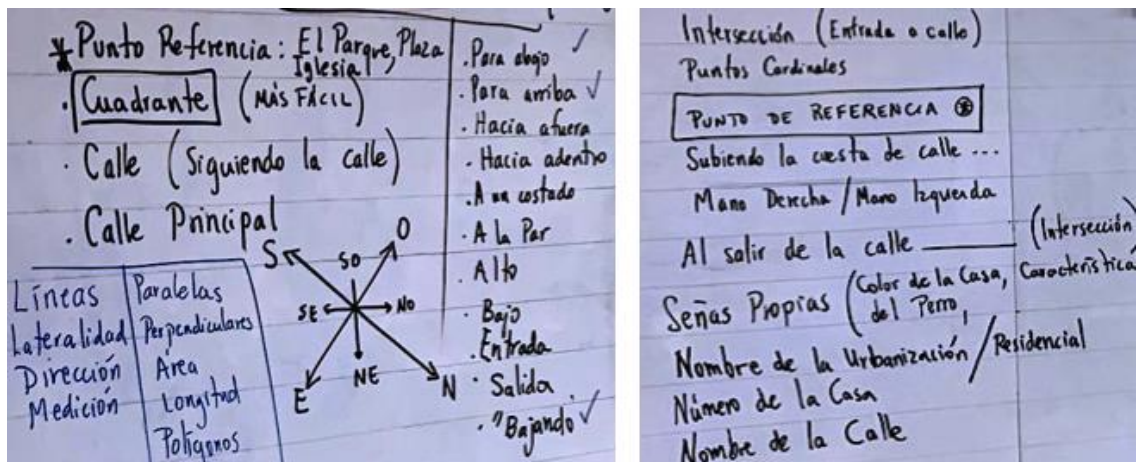 * Punto Referencia: El Parque, Plaza
Iglesia
. Cuadrante (MÁS FÁCIL)
. Calle (Siguiendo la calle)
. Calle Principal
S
SO
O
SE
NO
E
NE
N
Líneas
Lateralidad
Dirección
Medición
Paralelas
Perpendiculares
Área
Longitud
Polígonos
. Para abajo ✓
. Para arriba ✓
. Hacia afuera
. Hacia adentro
. A un costado
. A la Par
. Alto
. Bajo
. Entrada
. Salida
. "Bajando" ✓
Intersección (Entrada o calle)
Puntos Cardinales
PUNTO DE REFERENCIA
Subiendo la cuesta de calle ...
Mano Derecha / Mano Izquierda
Al salir de la calle ______ (Intersección)
Señas Propias (Color de la Casa, Característica
del Perro,
Nombre de la Urbanización / Residencial
Número de la Casa
Nombre de la Calle